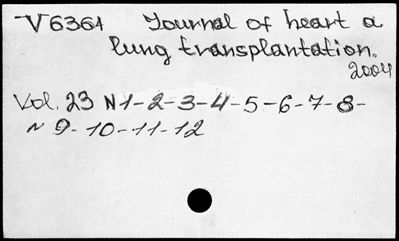 V6361 Journal of heart a
lung transplantation.
2004
Vol. 23 N1-2-3-4-5-6-7-8-
N 9-10-11-12